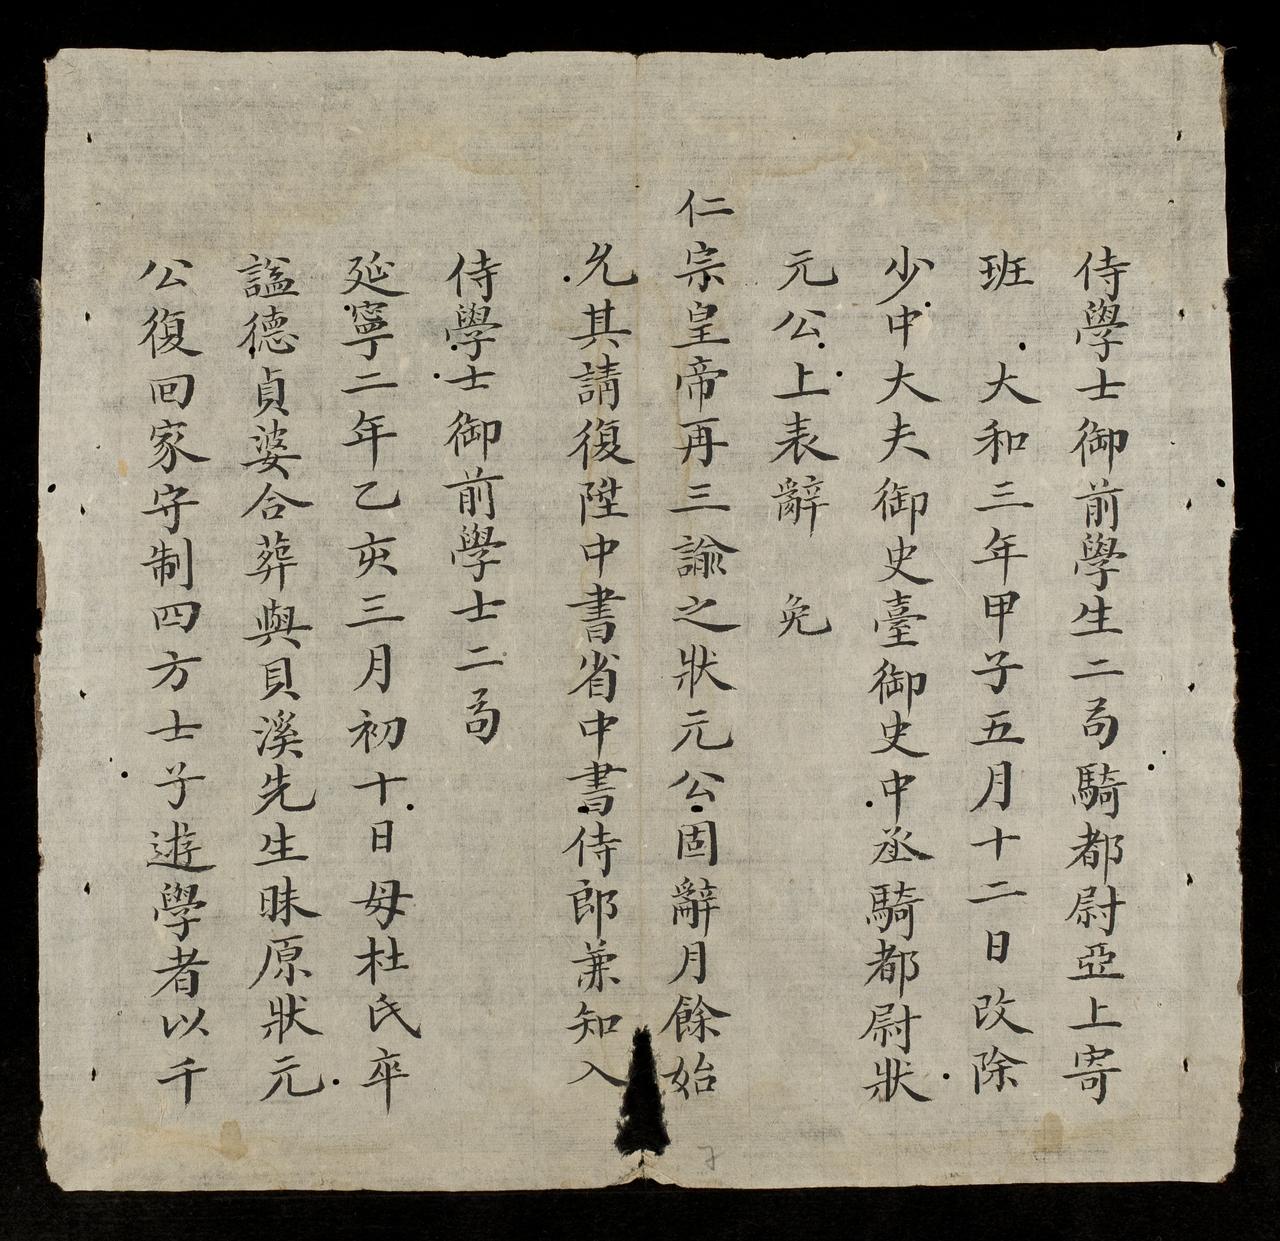 侍學士御前學生二局騎都尉亞上寄
班 大和三年甲子五月十二日改除
少中大夫御史臺御史中丞騎都尉狀
元公上表辭 免
仁宗皇帝再三諭之狀元公固辭月餘始
允其請復陞中書省中書侍郎兼知入
侍學士御前學士二局
延寧二年乙亥三月初十日母杜氏卒
謚德貞婆合葬與貝溪先生昧原狀元
公復回家守制四方士子遊學者以千